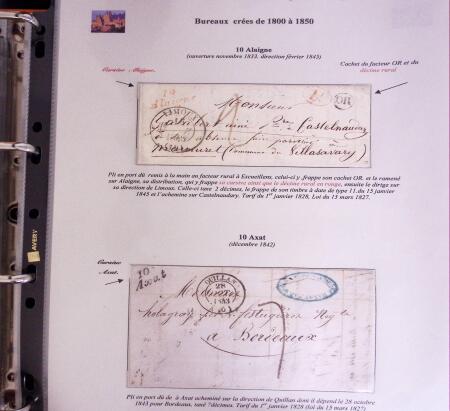 Bureaux crées de 1800 à 1850
10 Alaigne
(ouverture novembre 1833, direction février 1845)
Cursive Alaigne.
Cachet du facteur OR et du
décime rural
10
Alaigne
OR
Monsieur
Castelnaudary
(Commune de Villasavary)
Pli en port dû remis à la main au facteur rural à Escueillens, celui-ci y frappe son cachet OR. et le ramené
sur Alaigne, sa distribution, qui y frappe sa cursive ainsi que le décime rural en rouge, ensuite le dirige sur
sa direction de Limoux. Celle-ci taxe 2 décimes, le frappe de son timbre à date de type 11, du 15 janvier
1845 et l'achemine sur Castelnaudary. Tarif du 1er janvier 1828, Loi du 15 mars 1827.
10 Axat
(décembre 1842)
Cursive
Axat.
10
Axat
QUILLAN
28
1843
à Bordeaux
Pli en port dû de à Axat acheminé sur la direction de Quillan dont il dépend le 28 octobre
1843 pour Bordeaux, taxé 7décimes. Tarif du 1er janvier 1828 (loi du 15 mars 1827)
AVERY